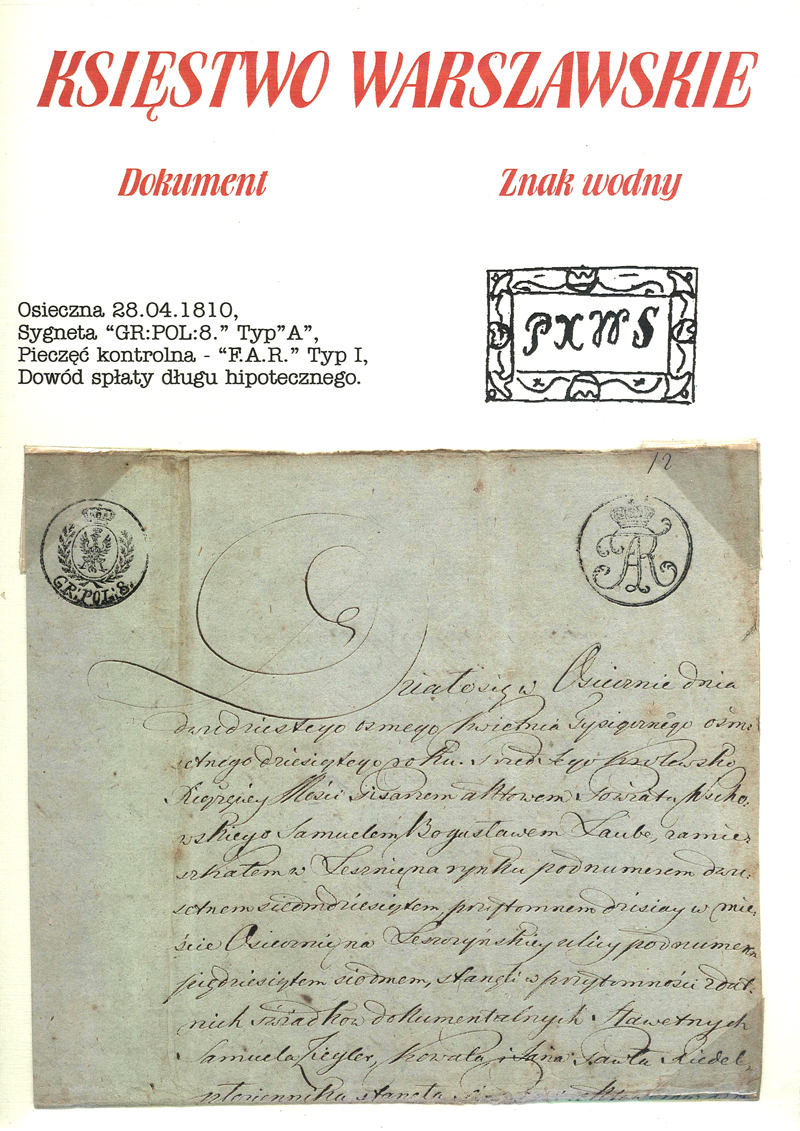 KSIĘSTWO WARSZAWSKIE
Dokument
Znak wodny
Osieczna 28.04.1810,
Sygneta “GR:POL:8.” Typ”A”,
Pieczęć kontrolna - “F.A.R.” Typ I,
Dowód spłaty długu hipotecznego.
PXWS
12
GR:POL:8.
FAR
Działo się w Osiecznie dnia
dwudziestego osmego kwietnia Tysiącznego ośm-
setnego dziesiątego roku. Przed Jego Krolewsko
Xiążęcey Mości Pisarzem aktowem Powiatu Wscho-
wskiego Samuelem Bogusławem Laube, zamie-
szkałem w Lesznie na rynku pod numerem dwu-
setnem siedmdziesiątem przytomnem dzisiay w mie-
ście Osiecznie na Leszczyńskiey ulicy pod numerem
pięćdziesiątem siodmem, stanęli w przytomności zdat-
nich świadkow dokumentalnych Sławetnych
Samuela Ziegler, kowala i Jana Pawła Riedel
płociennika stanęła